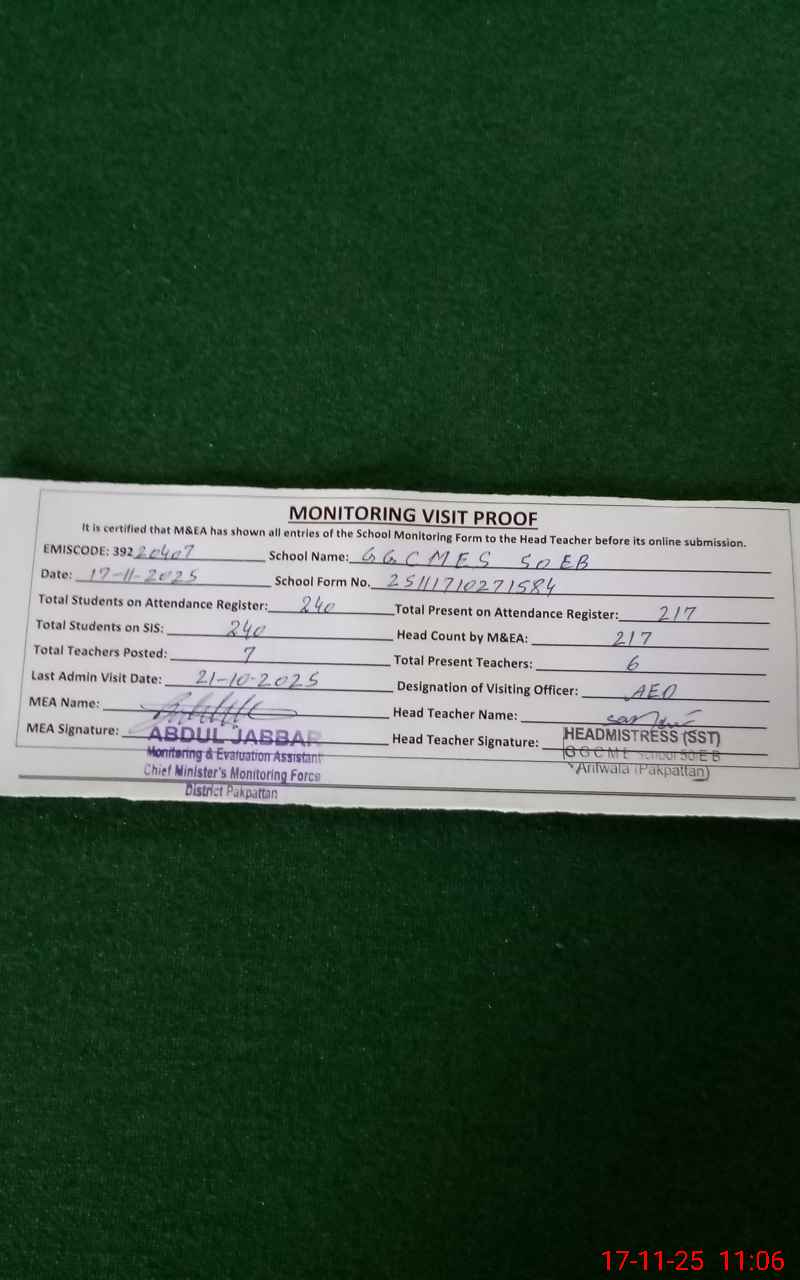 MONITORING VISIT PROOF
It is certified that M&EA has shown all entries of the School Monitoring Form to the Head Teacher before its online submission.
EMISCODE: 39220407 School Name: GGCMES 50 EB
Date: 17-11-2025 School Form No. 2511171027 1584
Total Students on Attendance Register: 240 Total Present on Attendance Register: 217
Total Students on SIS: 240 Head Count by M&EA: 217
Total Teachers Posted: 7 Total Present Teachers: 6
Last Admin Visit Date: 21-10-2025 Designation of Visiting Officer: AEO
MEA Name: Head Teacher Name:
MEA Signature: Head Teacher Signature:
ABDUL JABBAR HEADMISTRESS (SST)
Monitering & Evaluation Assistant G G C M E School 50/E B
Chief Minister's Monitoring Force Arifwala (Pakpattan)
District Pakpattan
17-11-25 11:06